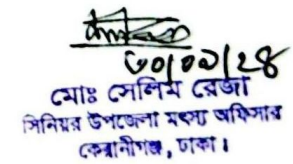 মোঃ সেলিম রেজা
সিনিয়র উপজেলা মৎস্য অফিসার
কেরানীগঞ্জ, ঢাকা।